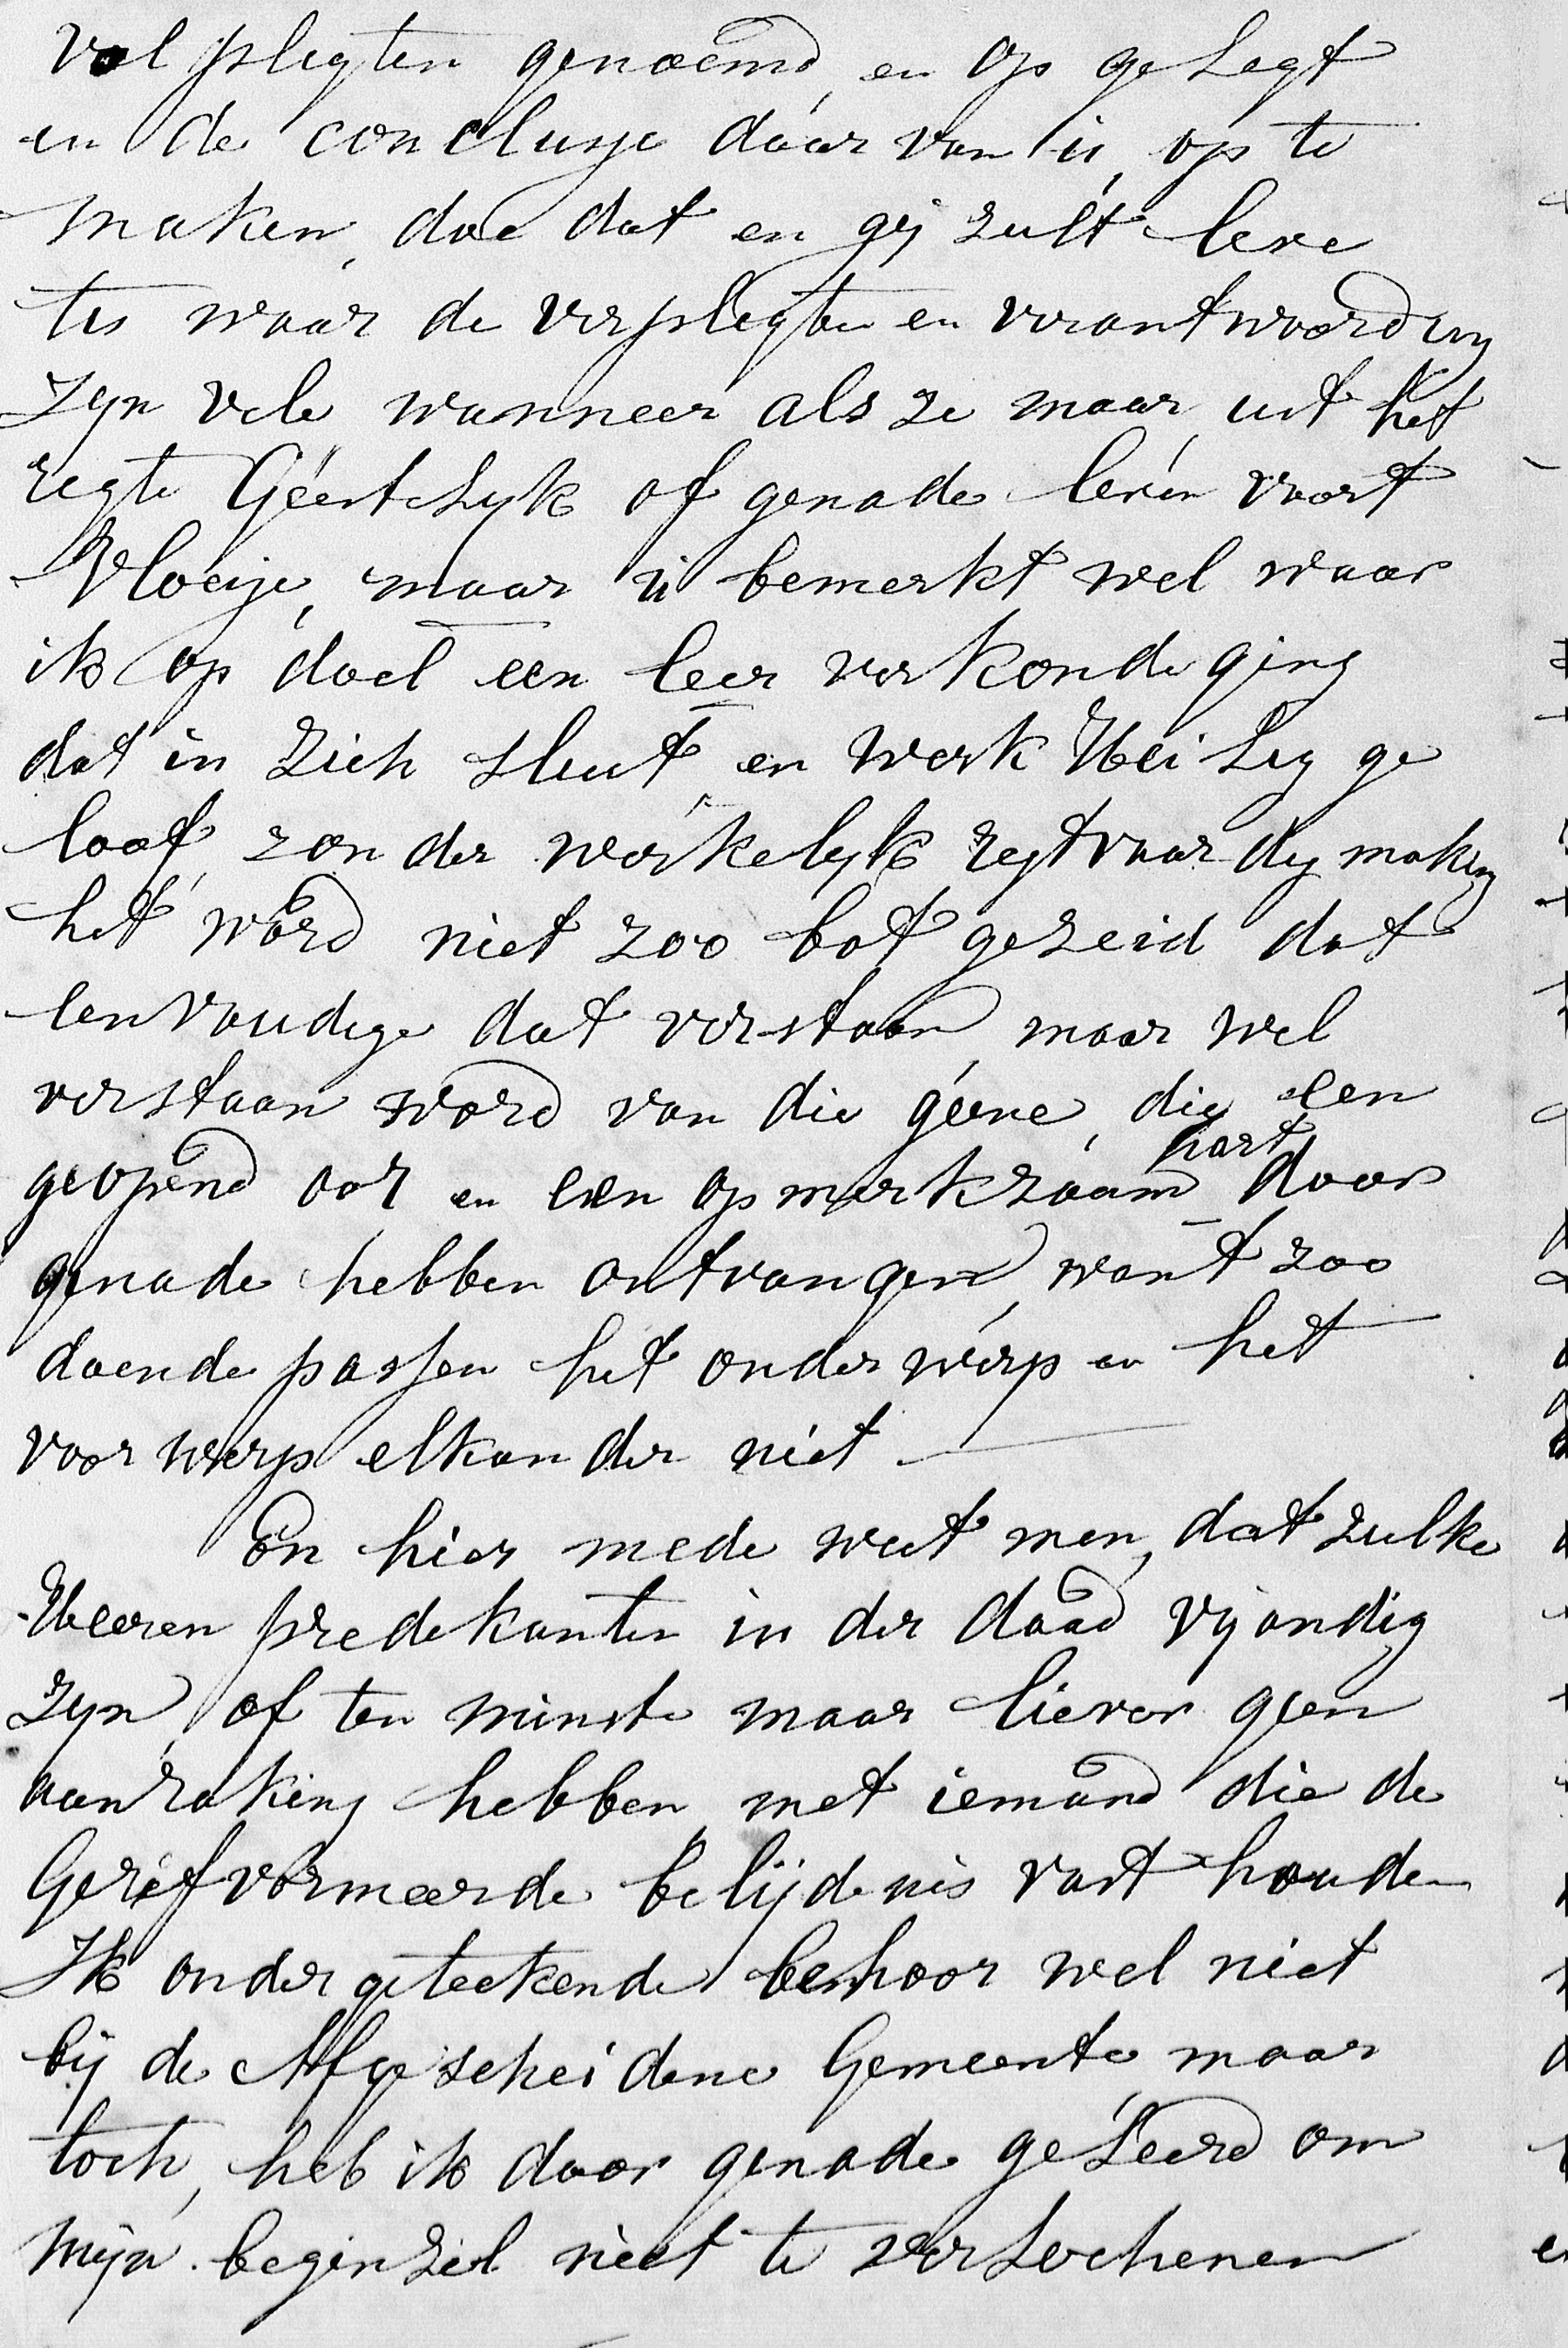 vol pligten genoemd, en op ge legt
en de conclusje daar van is, op te
maken, doe dat en gij zult leve
tis waar de verpligten en verantwoording
zyn vele wanneer als ze maar uit het
regte Geestelyk of genade leven voort
Vloeije, maar u bemerkt wel waar
ik op doel een leer verkondi ging
dat in zich sluit en werk Hei lig ge
loof, zon der werkelyk regtvaar dig making
het word niet zoo bot gezeid dat
eenvoudige dat verstaan, maar wel
verstaan word van die geene, die een
geopend oor en een opmerkzaam hart door
genade hebben ontvangen, want zoo
doende passen het onder werp en het
voor werp elkan der niet —
En hier mede weet men, dat zulke
Heeren predekanten in der daad vijandig
zyn, of ten minste maar liever geen
aanraking hebben, met iemand die de
Gerefvormeerde belijdenis vast houden
Ik onder geteekende behoor wel niet
bij de Afge scheidene Gemeente maar
toch, heb ik door genade geleerd om
mijn beginzel niet te verlochenen